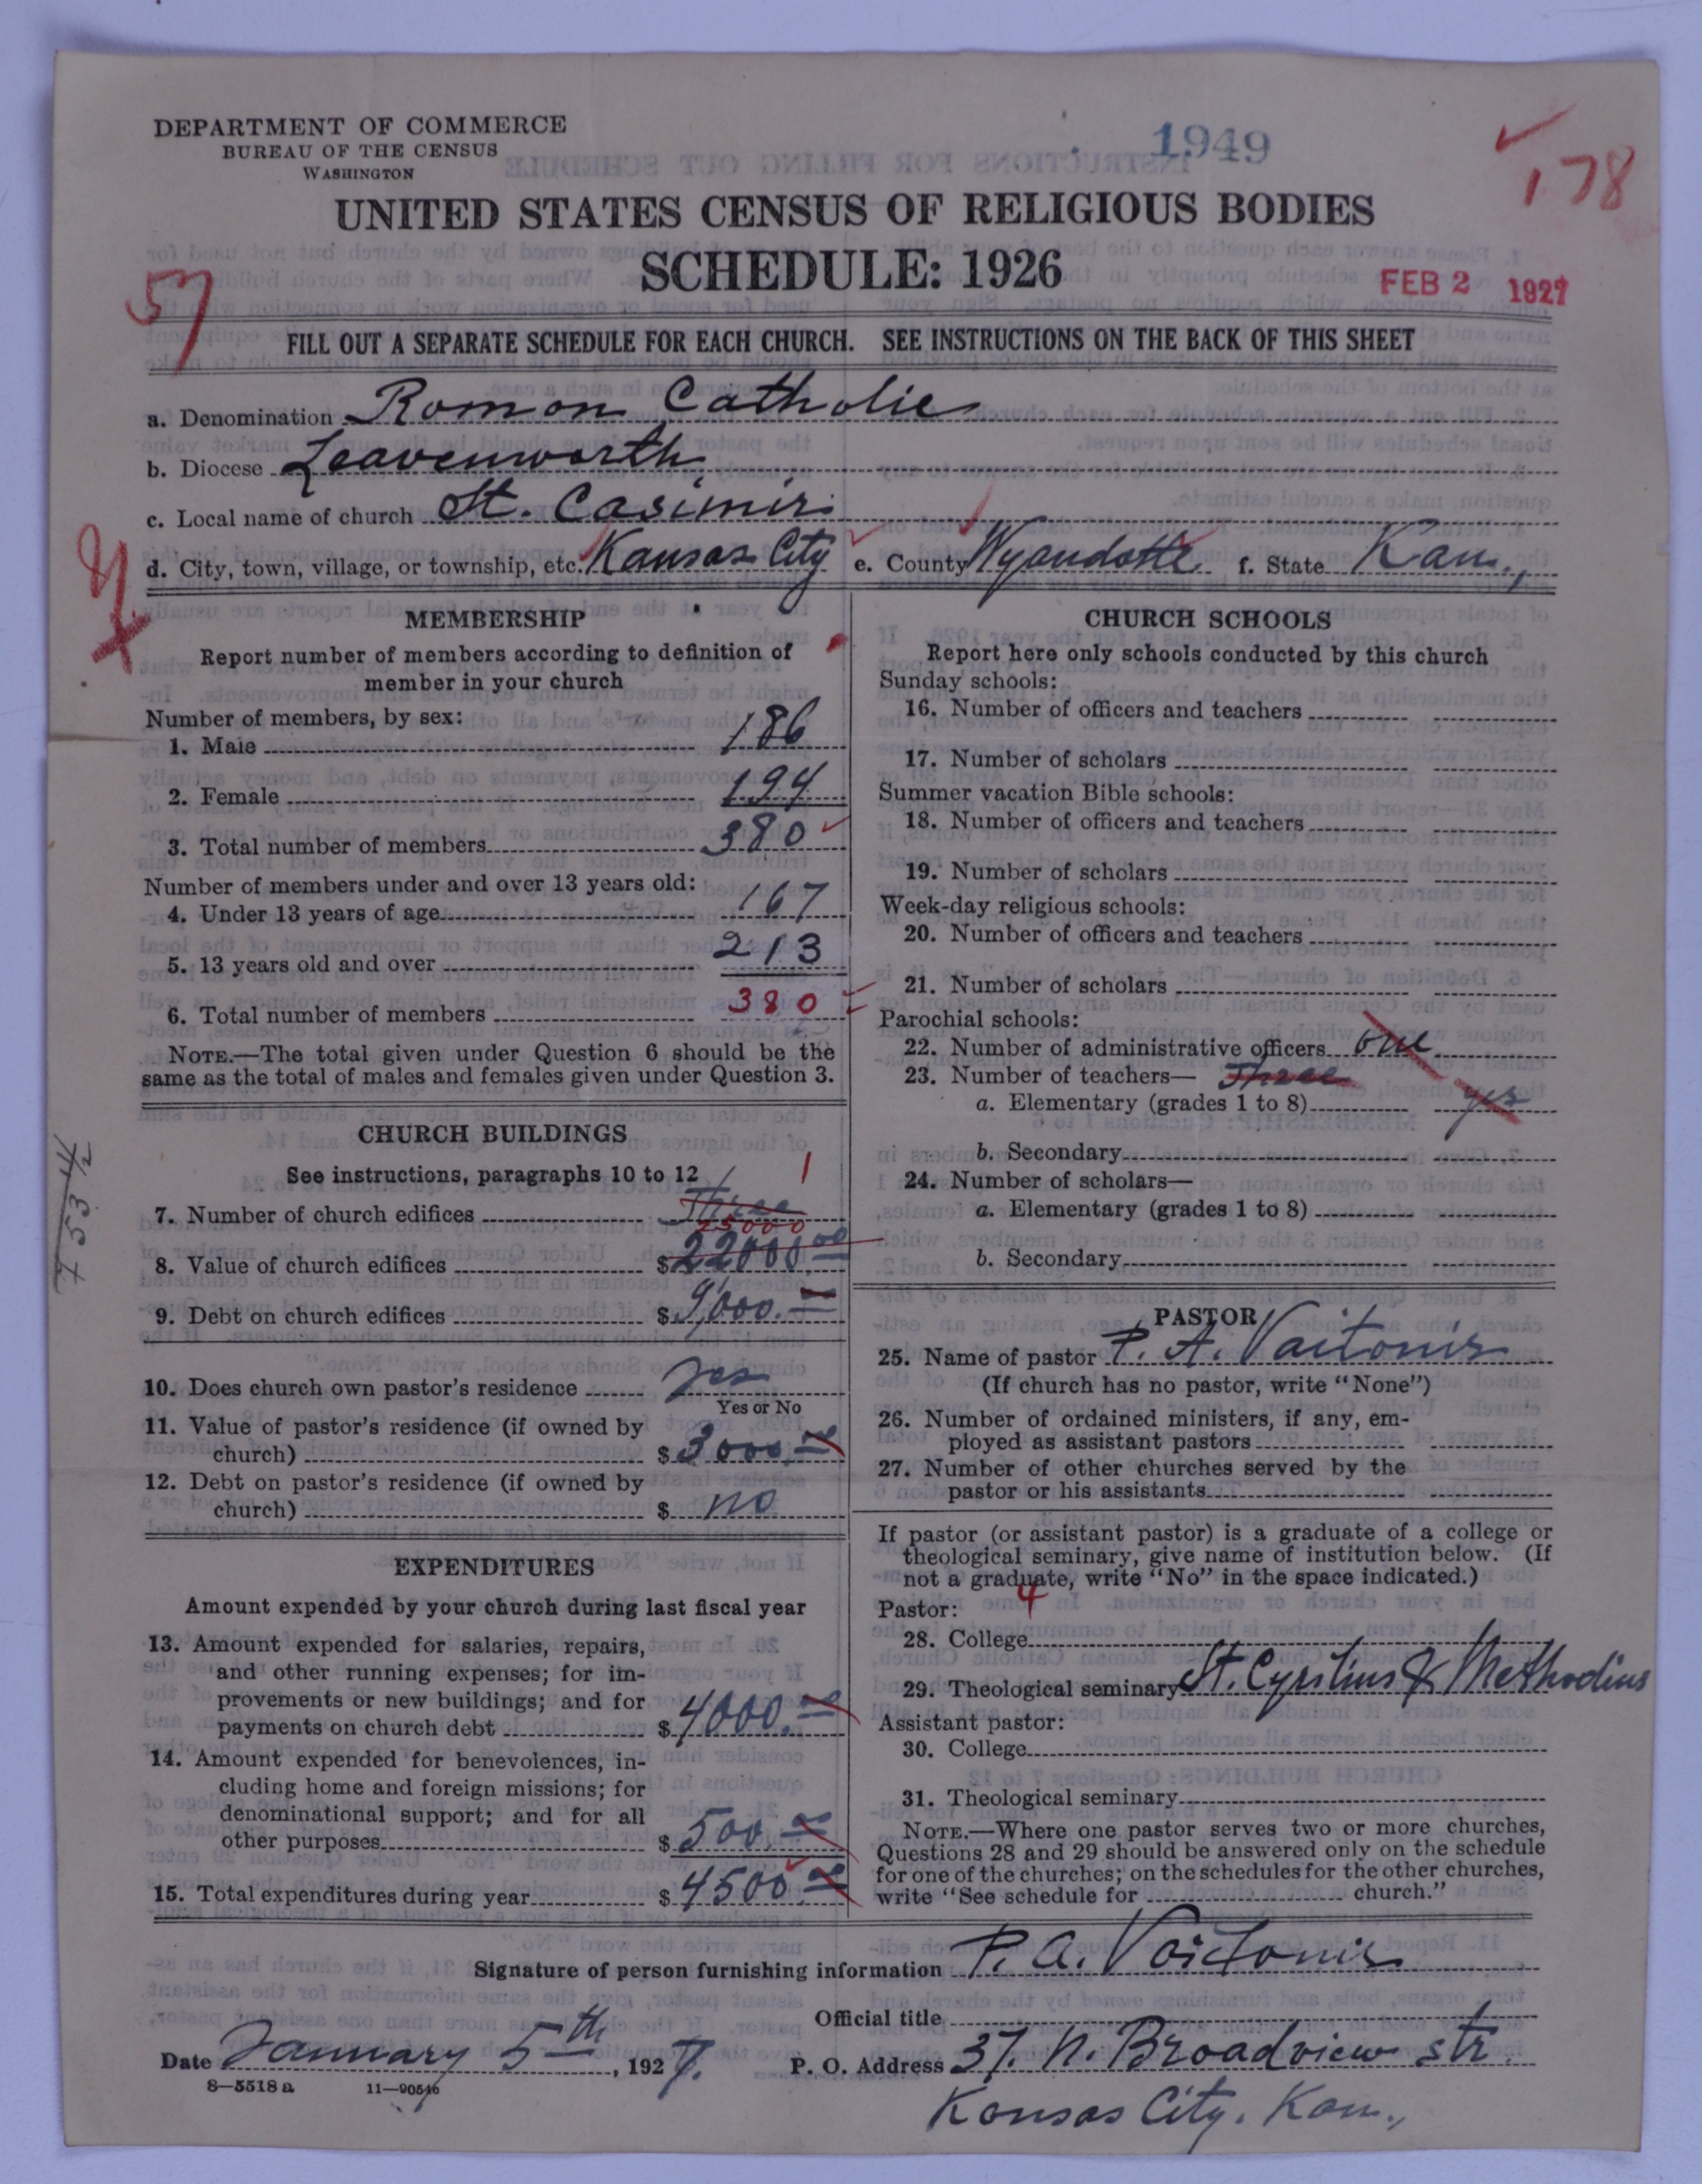 DEPARTMENT OF COMMERCE
BUREAU OF THE CENSUS
WASHINGTON
1949
178
UNITED STATES CENSUS OF RELIGIOUS BODIES
SCHEDULE: 1926
FEB 2 1927
57
FILL OUT A SEPARATE SCHEDULE FOR EACH CHURCH. SEE INSTRUCTIONS ON THE BACK OF THIS SHEET
a. Denomination Roman Catholic
b. Diocese Leavenworth
c. Local name of church St. Casimir
d. City, town, village, or township, etc. Kansas City e. County Wyandotte f. State Kan.,
MEMBERSHIP
Report number of members according to definition of
member in your church
Number of members, by sex:
1. Male 186
2. Female 194
3. Total number of members 380
Number of members under and over 13 years old:
4. Under 13 years of age 167
5. 13 years old and over 213
6. Total number of members 380
NOTE.—The total given under Question 6 should be the
same as the total of males and females given under Question 3.
CHURCH BUILDINGS
See instructions, paragraphs 10 to 12
7. Number of church edifices Three 1
25000
8. Value of church edifices $22000.00
9. Debt on church edifices $9,000.—
10. Does church own pastor's residence Yes
Yes or No
11. Value of pastor's residence (if owned by
church) $3000.00
12. Debt on pastor's residence (if owned by
church) $ no
EXPENDITURES
Amount expended by your church during last fiscal year
13. Amount expended for salaries, repairs,
and other running expenses; for im-
provements or new buildings; and for
payments on church debt $4000.00
14. Amount expended for benevolences, in-
cluding home and foreign missions; for
denominational support; and for all
other purposes $500.00
15. Total expenditures during year $4500.00
CHURCH SCHOOLS
Report here only schools conducted by this church
Sunday schools:
16. Number of officers and teachers
17. Number of scholars
Summer vacation Bible schools:
18. Number of officers and teachers
19. Number of scholars
Week-day religious schools:
20. Number of officers and teachers
21. Number of scholars
Parochial schools:
22. Number of administrative officers one
23. Number of teachers— Three
a. Elementary (grades 1 to 8) yes
b. Secondary
24. Number of scholars—
a. Elementary (grades 1 to 8)
b. Secondary
PASTOR
25. Name of pastor P. A. Vaitonis
(If church has no pastor, write "None")
26. Number of ordained ministers, if any, em-
ployed as assistant pastors
27. Number of other churches served by the
pastor or his assistants
If pastor (or assistant pastor) is a graduate of a college or
theological seminary, give name of institution below. (If
not a graduate, write "No" in the space indicated.)
Pastor: 4
28. College
29. Theological seminary St. Cyrilius & Methodius
Assistant pastor:
30. College
31. Theological seminary
NOTE.—Where one pastor serves two or more churches,
Questions 28 and 29 should be answered only on the schedule
for one of the churches; on the schedules for the other churches,
write "See schedule for church."
Signature of person furnishing information P. A. Vaitonis
Official title
Date January 5th, 1927. P. O. Address 37. N. Broadview str.
8—5518 a 11—90546
Kansas City. Kan.,